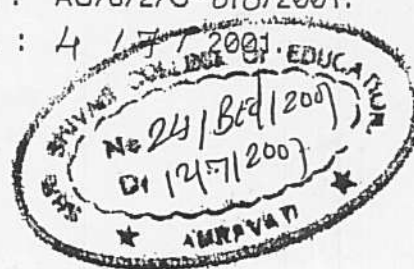 : 4 / 7 / 2001.
SHRI SHIVAJI COLLEGE OF EDUCATION
No 24/BEd/2001
Dt 12/7/2001
★ AMRAVATI ★